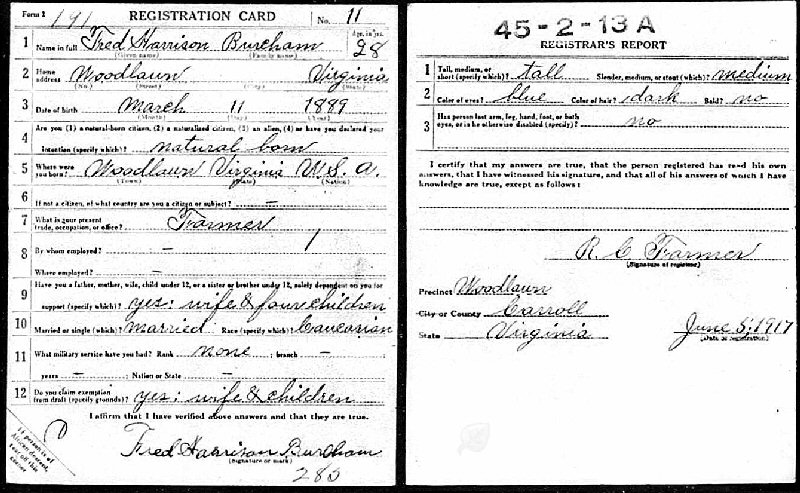 Form 1 191 REGISTRATION CARD No. 11
1 Name in full Fred Harrison Burcham Age, in yrs. 28
(Given name) (Family name)
2 Home address Woodlawn Virginia
(No.) (Street) (City) (State)
3 Date of birth March 11 1889
(Month) (Day) (Year)
4 Are you (1) a natural-born citizen, (2) a naturalized citizen, (3) an alien, (4) or have you declared your
intention (specify which)? natural born
5 Where were you born? Woodlawn Virginia U.S.A.
(Town) (State) (Nation)
6 If not a citizen, of what country are you a citizen or subject? -
7 What is your present trade, occupation, or office? Farmer
8 By whom employed? -
Where employed? -
9 Have you a father, mother, wife, child under 12, or a sister or brother under 12, solely dependent on you for
support (specify which)? yes: wife & four children
10 Married or single (which)? married Race (specify which)? Caucasian
11 What military service have you had? Rank none ; branch -
years - ; Nation or State -
12 Do you claim exemption from draft (specify grounds)? yes: wife & children
I affirm that I have verified above answers and that they are true.
Fred Harrison Burcham
(Signature or mark)
If person is of African descent, tear off this corner
285
45-2-13 A
REGISTRAR'S REPORT
1 Tall, medium, or short (specify which)? tall Slender, medium, or stout (which)? medium
2 Color of eyes? blue Color of hair? dark Bald? no
3 Has person lost arm, leg, hand, foot, or both
eyes, or is he otherwise disabled (specify)? no
I certify that my answers are true, that the person registered has read his own
answers, that I have witnessed his signature, and that all of his answers of which I have
knowledge are true, except as follows:
R. C. Farmer
(Signature of registrar)
Precinct Woodlawn
City or County Carroll
State Virginia June 5, 1917
(Date of registration)